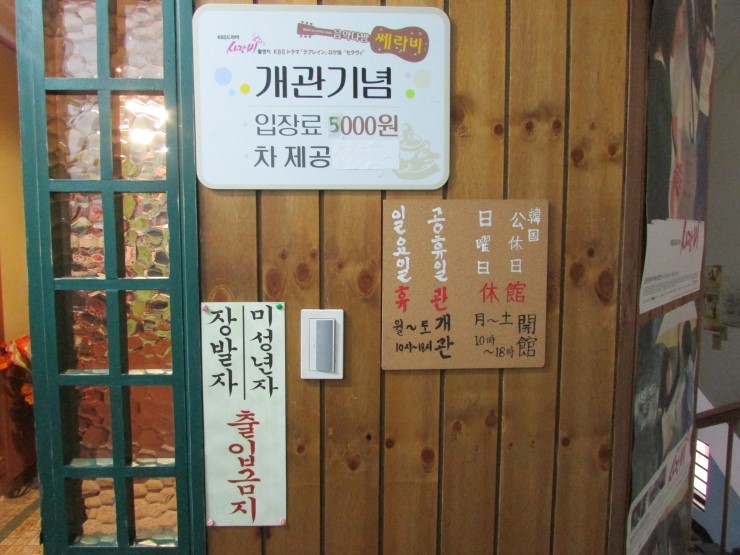 KBS드라마
사랑비
음악다방
쎄라비
촬영지 KBSドラマ「ラブレイン」ロケ地 "セラヴィ"
개관기념
입장료 5000원
차 제공
일요일 공휴일
휴관
월~토 개관
10시~18시
韓国
公休日
日曜日
休館
月~土 開館
10時
~18時
미성년자
장발자
출입금지
사랑비